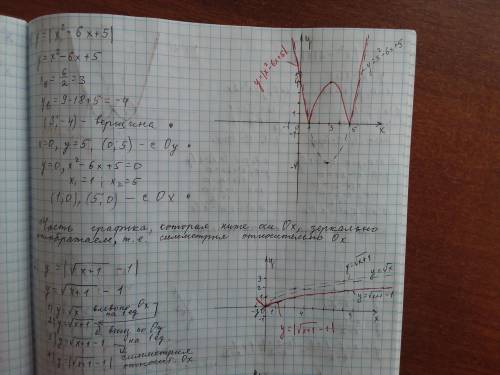 y=|x²-6x+5|
y=x²-6x+5
x₀=6/2=3
y₀=9-18+5=-4
(3,-4) - вершина
x=0, y=5, (0,5) - с Oy
y=0, x²-6x+5=0
x₁=1, x₂=5
(1,0), (5,0) - с Ox
y=|x²-6x+5|
y
y=x²-6x+5
-1 0 1 3 5 x
-4
Часть графика, которая ниже оси Ox, зеркально
отображаем, т.е. симметрия относительно Ox
y=|√x+1 -1|
y=√x+1 -1
1) y=√x влево по Ox на 1 ед.
2) y=√x+1 вниз по Oy
3) y=√x+1 -1 на 1 ед.
4) y=|√x+1 -1| симметрия
относит. Ox
y
y=√x+1
y=√x
y=√x+1 -1
x
y=|√x+1 -1|
y